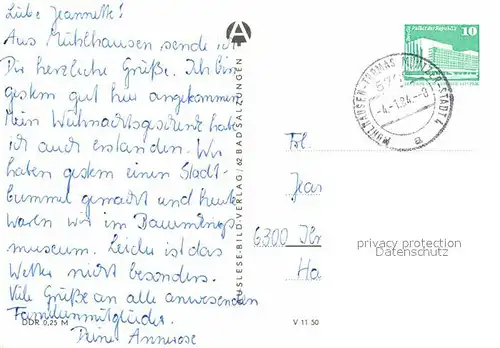 Liebe Jeannette!
Aus Mühlhausen sende ich
Dir herzliche Grüße. Ich bin
gestern gut hier angekommen.
Mein Weihnachtsgeschenk habe
ich auch erstanden. Wir
haben gestern einen Stadt-
bummel gemacht und heute
waren wir im Bauernkriegs-
museum. Leider ist das
Wetter nicht besonders.
Viele Grüße an alle anwesenden
Familienmitglieder.
Deine Annerose
DDR 0,25 M
AUSLESE-BILD-VERLAG / 62 BAD SALZUNGEN
V 11 50
Palast der Republik
10
MÜHLHAUSEN-THOMAS-MÜNTZER-STADT 4
-4.-1.84.-9
a
Frl.
Jean
6300 Ilm
Ha
privacy protection
Datenschutz